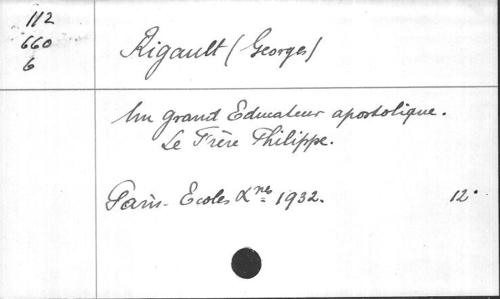 112
660
6
Rigault (Georges)
Un grand Educateur apostolique.
Le Frère Philippe.
Paris - Ecoles Xnes 1932. 12°